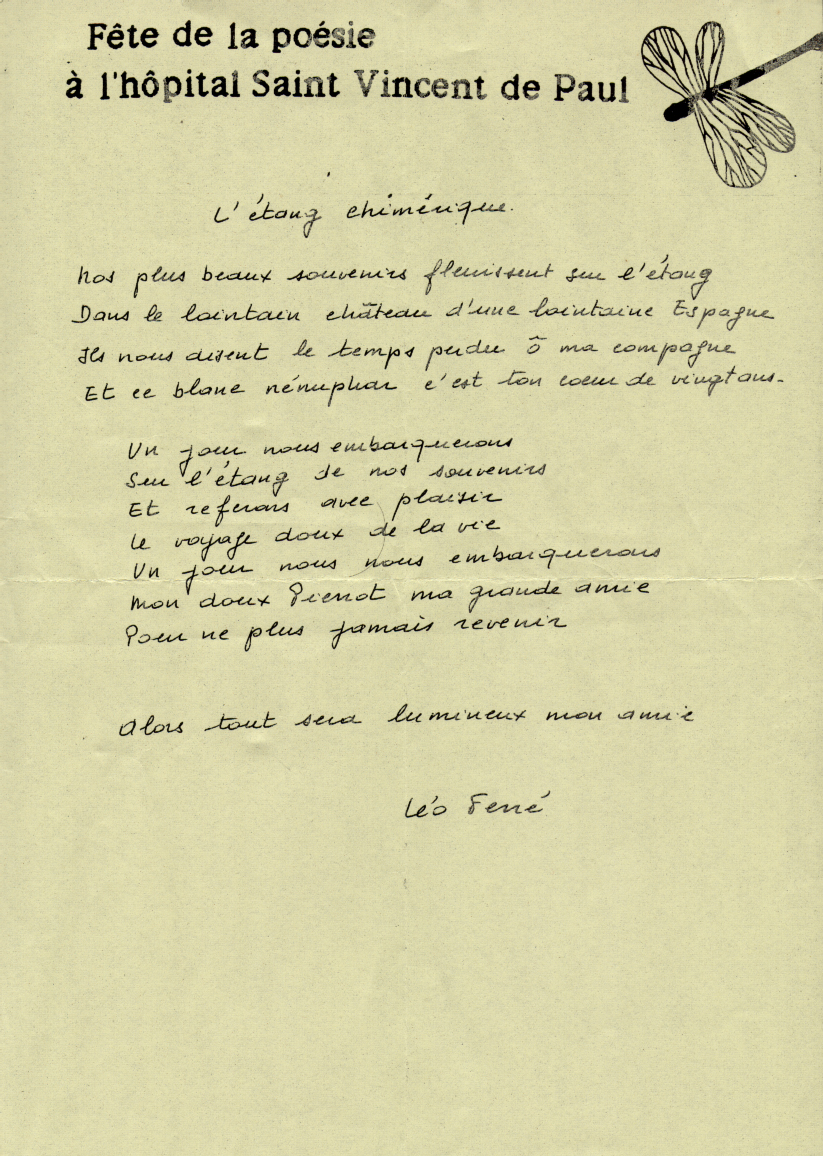 Fête de la poésie
à l'hôpital Saint Vincent de Paul
L'étang chimérique.
Nos plus beaux souvenirs fleurissent sur l'étang
Dans le lointain château d'une lointaine Espagne
Ils nous disent le temps perdu ô ma compagne
Et ce blanc nénuphar c'est ton coeur de vingt ans.
Un jour nous embarquerons
Sur l'étang de nos souvenirs
Et referons avec plaisir
Le voyage doux de la vie
Un jour nous nous embarquerons
Mon doux Pierrot ma grande amie
Pour ne plus jamais revenir
Alors tout sera lumineux mon amie
Léo Ferré